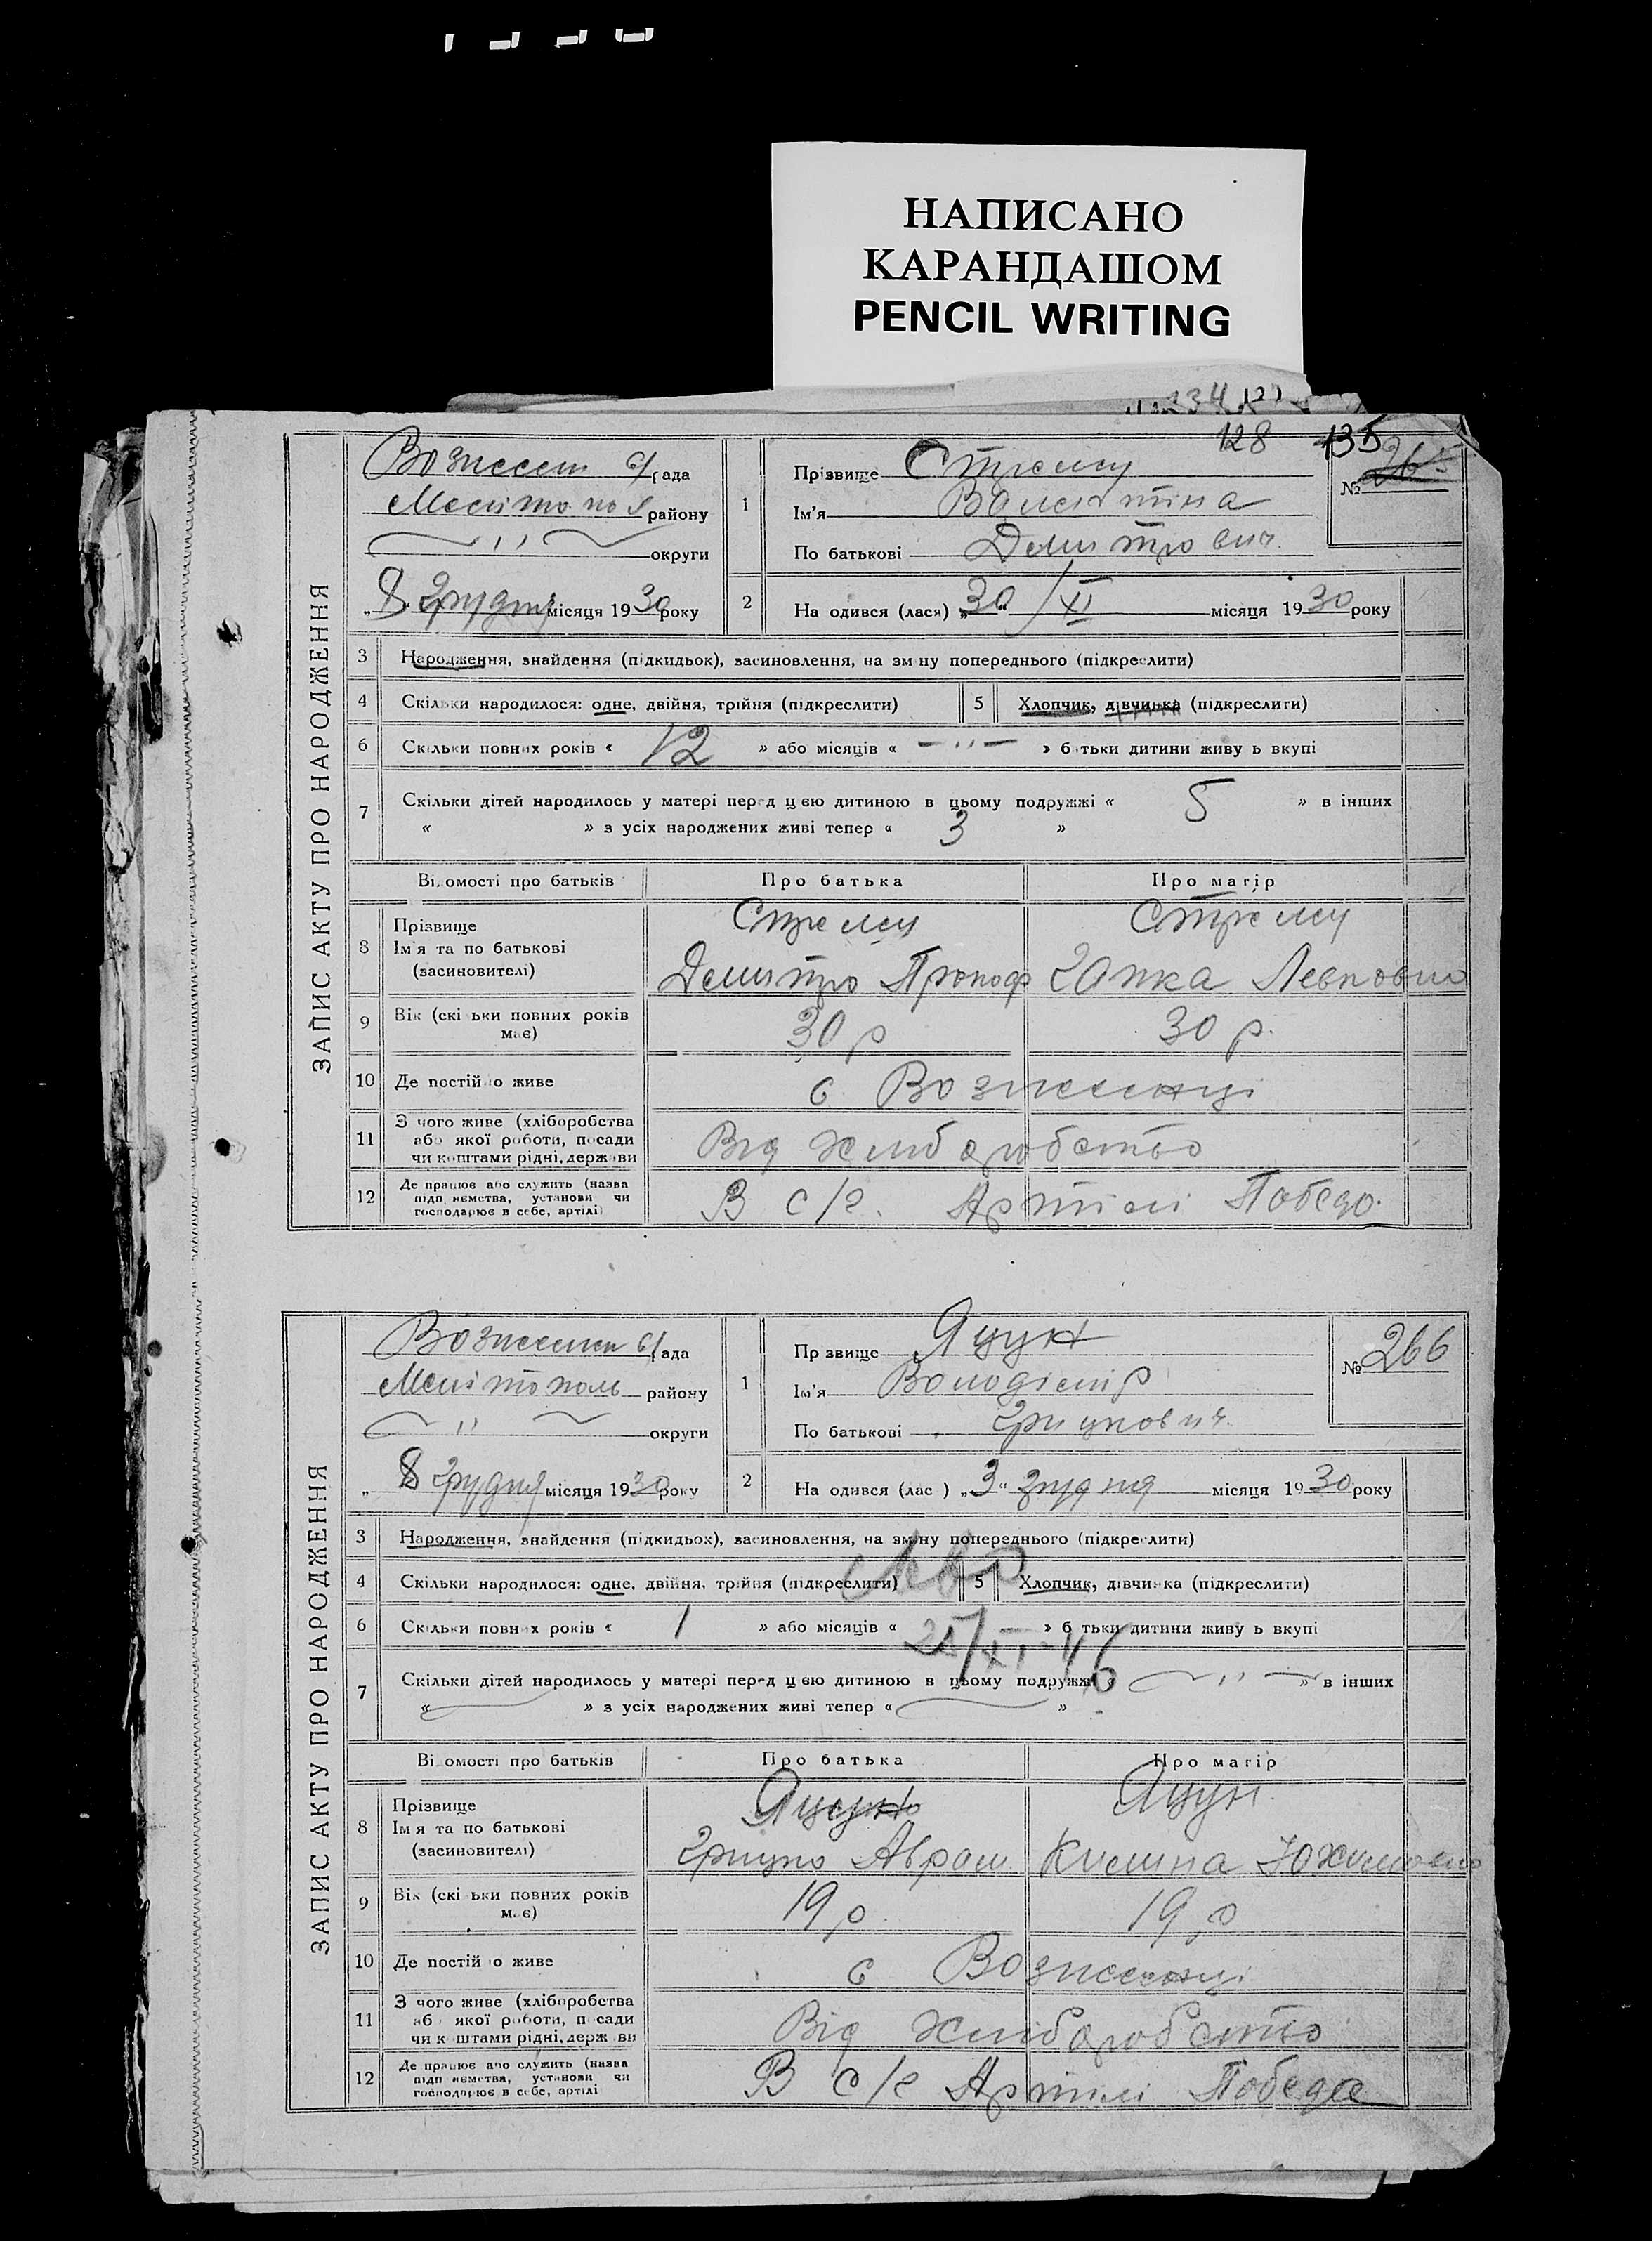 НАПИСАНО
КАРАНДАШОМ
PENCIL WRITING
128 135
ЗАПИС АКТУ ПРО НАРОДЖЕННЯ
Вознесен с/рада
Меліtопол району
— " — округи
„8" Грудня місяця 1930 року
1 Прізвище
Ім'я Валентіна
По батькові Демитрович
№ 265
2 На одився (лася) „30" /XI місяця 1930 року
3 Народження, знайдення (підкидьок), засиновлення, на зміну попереднього (підкреслити)
4 Скільки народилося: одне, двійня, трійня (підкреслити) 5 Хлопчик, дівчинка (підкреслити)
6 Скільки повних років « 12 » або місяців « — " — » батьки дитини живу ь вкупі
7 Скільки дітей народилось у матері перед цією дитиною в цьому подружжі « 5 » в інших
« » з усіх народжених живі тепер « 3 »
Відомості про батьків Про батька Про матір
8 Прізвище
Ім'я та по батькові Демитро Прокоф
(засиновителі)
9 Вік (скі ьки повних років має) 30 р 30 р.
10 Де постійно живе с Вознесенці
11 З чого живе (хліборобства
або якої роботи, посади
чи коштами рідні, держави Від хліборобство
12 Де працює або служить (назва
підп иємства, установи чи
господарює в себе, артілі) В с/г. Артілі Победа.
ЗАПИС АКТУ ПРО НАРОДЖЕННЯ
Вознесен с/рада
Мелітополь району
— " — округи
„8 Грудня місяця 1930 року
1 Пр звище Яцун
Ім'я Володімір
По батькові Грицкович.
№ 266
2 На одився (лас ) „3" грудня місяця 1930 року
3 Народження, знайдення (підкидьок), засиновлення, на зміну попереднього (підкреслити)
4 Скільки народилося: одне, двійня, трійня (підкреслити) 5 Хлопчик, дівчинка (підкреслити)
6 Скільки повних років « 1 » або місяців « » б тьки дитини живу ь вкупі
7 Скільки дітей народилось у матері перед цією дитиною в цьому подружжі « — " — » в інших
« — » з усіх народжених живі тепер « — »
Ві омості про батьків Про батька Про матір
8 Прізвище Яцун Яцун
Ім'я та по батькові Грицко Аврам Килина Юхимовно
(засиновителі)
9 Вік (скі ьки повних років має) 19 р. 19 р
10 Де постій о живе с Вознесенці
11 З чого живе (хліборобства
аб якої роботи, посади
чи к штами рідні, держ ви Від хліборобство
12 Де працює або служить (назва
підп иємства, установи чи
господарює в себе, артілі В с/г Артілі Победа